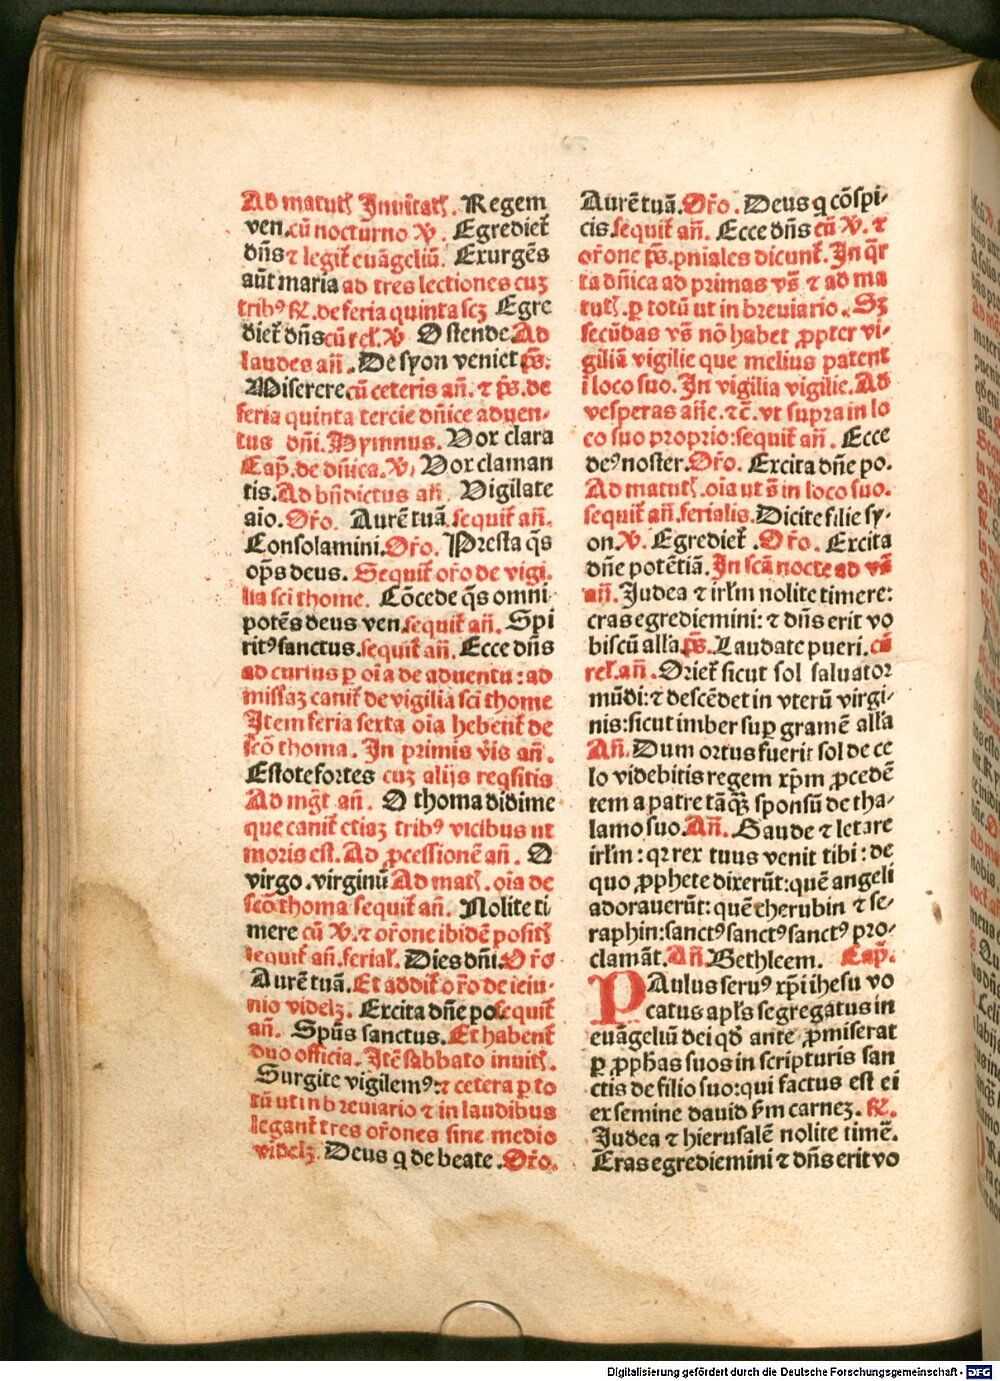 Ad matutꝭ Inuitatꝭ. Regem
ven. cū nocturno ꝟ. Egredieť
dn̄s ⁊ legiť euāgeliū. Exurgēs
aūt maria ad tres lectiones cuꝫ
tribꝰ ꝶ. de feria quinta scꝫ Egre
dieť dn̄s cū reƚ. ꝟ Ostende. Ad
laudes an̄. De syon veniet p̄s.
Miserere cū ceteris an̄. ⁊ p̄s. de
feria quinta tercie dn̄ice aduen-
tus dn̄i. Hymnus. Vox clara
Cap̄. de dn̄ica. ꝟ, Vox claman
tis. Ad bn̄dictus an̄ Vigilate
aio. Or̄o. Aurē tuā. sequiť an̄.
Consolamini. Or̄o. Presta q̄s
op̄s deus. Sequiť or̄o de vigi.
lia sc̄i thome. Cōcede q̄s omni
potēs deus ven. sequiť an̄. Spi
ritꝰ sanctus. sequiť an̄. Ecce dn̄s
ad cursus ꝑ oīa de aduentu: ad
missaꝫ caniť de vigilia sc̄i thome
Item feria sexta oīa hebenť de
sc̄o thoma. In primis v̄is an̄.
Estote fortes cuꝫ alijs reqsitis
Ad mḡt an̄. O thoma didime
que caniť etiaꝫ tribꝰ vicibus ut
moris est. Ad ꝓcessionē an̄. O
virgo. virginū Ad matꝭ. oīa de
sc̄o thoma sequiť an̄. Nolite ti
mere cū ꝟ. ⁊ or̄one ibidē positꝭ
sequiť an̄. feriaƚ. Dies dn̄i. Or̄o
Aurē tuā. Et addiť or̄o de ieiu-
nio videlꝫ. Excita dn̄e po sequiť
an̄. Spūs sanctus. Et habenť
duo officia. Itē sabbato inuitꝭ.
Surgite vigilemꝰ: ⁊ cetera ꝑ to
tū ut in breuiario ⁊ in laudibus
leganť tres or̄ones sine medio
videlꝫ. Deus q de beate. Or̄o.
Aurē tuā. Or̄o. Deus q cōspi-
cis. sequiť an̄. Ecce dn̄s cū ꝟ. ⁊
or̄one p̄s. pniales dicunť. In q̄r
ta dn̄ica ad primas vs̄ ⁊ ad ma
tutꝭ. ꝑ totū ut in breuiario. Sꝫ
secūdas vs̄ nō habet ꝓpter vi-
giliā vigilie que melius patent
ī loco suo. In vigilia vigilie. Ad
vesperas an̄e. ⁊c̄. vt supra in lo
co suo proprio: sequiť an̄. Ecce
deꝰ noster. Or̄o. Excita dn̄e po.
Ad matutꝭ. oīa ut s̄ in loco suo.
sequiť an̄. ferialis. Dicite filie sy-
on. ꝟ. Egredieť. Or̄o. Excita
dn̄e potētiā. In scā nocte ad vs̄
an̄. Judea ⁊ irlm̄ nolite timere:
cras egrediemini: ⁊ dn̄s erit vo
biscū alla. p̄s. Laudate pueri. cū
reƚ. an̄. Orieť sicut sol saluator
mūdi: ⁊ descēdet in vterū virgi-
nis: sicut imber sup̄ gramē alla
An̄. Dum ortus fuerit sol de ce
lo videbitis regem xp̄m ꝓcedē
tem a patre tāq̄ꝫ sponsū de tha-
lamo suo. An̄. Gaude ⁊ letare
irlm̄: qꝛ rex tuus venit tibi: de
quo ꝓphete dixerūt: quē angeli
adorauerūt: quē cherubin ⁊ se-
raphin: sanctꝰ sanctꝰ sanctꝰ pro-
clamāt. An̄. Bethleem. Cap̄.
PAulus seruꝰ xp̄i ihesu vo
catus apl̄s segregatus in
euāgeliū dei qd̄ ante ꝓmiserat
ꝑ ꝓphas suos in scripturis san
ctis de filio suo: qui factus est ei
ex semine dauid s̄m carneꝫ. ꝶ.
Judea ⁊ hierusalē nolite timē.
Cras egrediemini ⁊ dn̄s erit vo
Digitalisierung gefördert durch die Deutsche Forschungsgemeinschaft - DFG